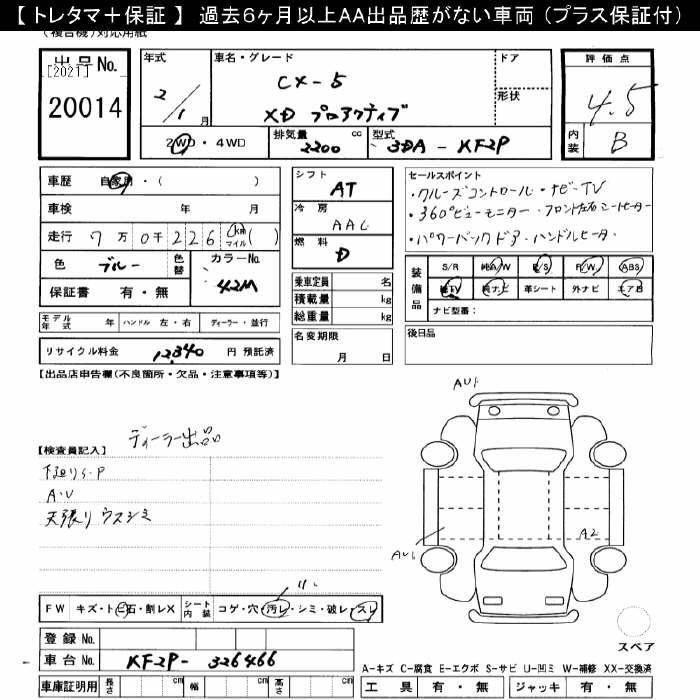 【 トレタマ＋保証 】 過去6ヶ月以上AA出品歴がない車両 (プラス保証付)
(複合機)対応用紙
出品No.
[2021]
20014
年式
2/1月
車名・グレード
CX-5
XD プロアクティブ
ドア
形状
評価点
4.5
内装 B
2WD・4WD
排気量 2200 cc
型式 3DA - KF2P
車歴 自家用・( )
車検 年 月
走行 7万0千226 km マイル( )
色 ブルー
色替
カラーNo. 42M
保証書 有・無
モデル年式 年 ハンドル 左・右 ディーラー・並行
リサイクル料金 12,340 円 預託済
シフト AT
冷房 AAC
燃料 D
乗車定員 名
積載量 kg
総重量 kg
名変期限
月 日
セールスポイント
・クルーズコントロール・ナビーTV
・360°ビューモニター・フロント左右シートヒーター
・パワーバックドア・ハンドルヒーター
装備品
S/R 純A/W P/S P/W ABS
純TV 純ナビ 革シート 外ナビ エアB
ナビ型番:
後日品
【出品店申告欄(不良箇所・欠品・注意事項等)】
ディーラー出品
【検査員記入】
下廻りS・P
A・U
天張りウスシミ
AU1
AU1
A2
FW キズ・トビ石・割レX
シート内装 コゲ・穴・汚レ・シミ・破レ・スレ
登録No.
車台No. KF2P- 326466
車庫証明用 長さ cm 幅 cm 高さ cm
スペア
A-キズ C-腐食 E-エクボ S-サビ U-凹ミ W-補修 XX-交換済
工具 有・無 ジャッキ 有・無